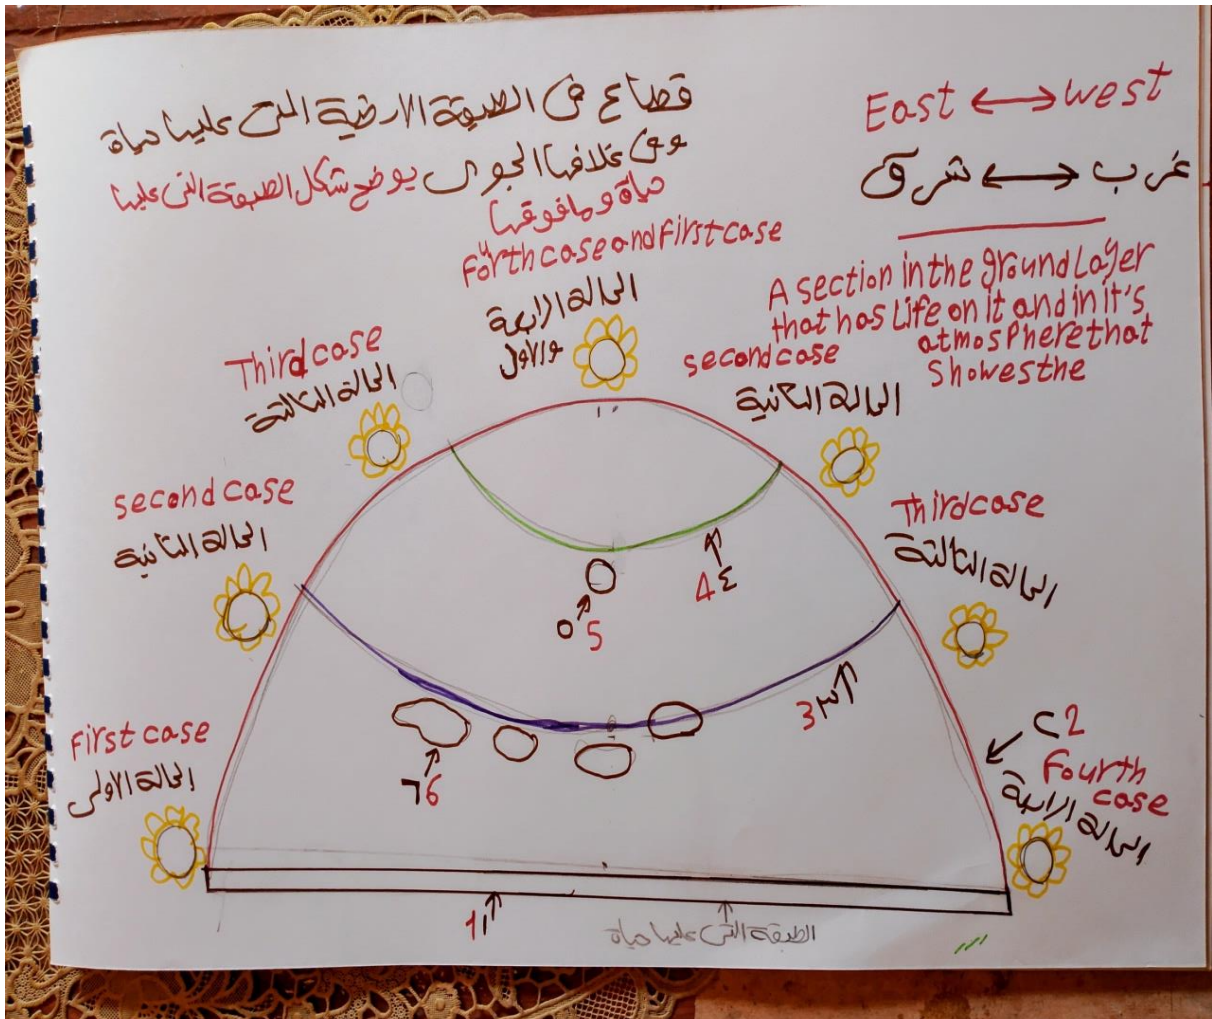 قطاع فى الطبقة الارضية التى عليها حياة
وفى غلافها الجوى يوضح شكل الطبقة التى عليها
حياة وما فوقها
East ↔ west
غرب ↔ شرق
A section in the ground Layer
that has Life on it and in it's
atmospherethat
Showesthe
Fourth case and First case
الحالة الرابعة
والاولى
second case
الحالة الثانية
Third case
الحالة الثالثة
Third case
الحالة الثالثة
second case
الحالة الثانية
First case
الحالة الاولى
4 ٤
٥ 5
3 ٣
٦ 6
٢ 2
Fourth
case
الحالة الرابعة
1 ١
الطبقة التى عليها حياة